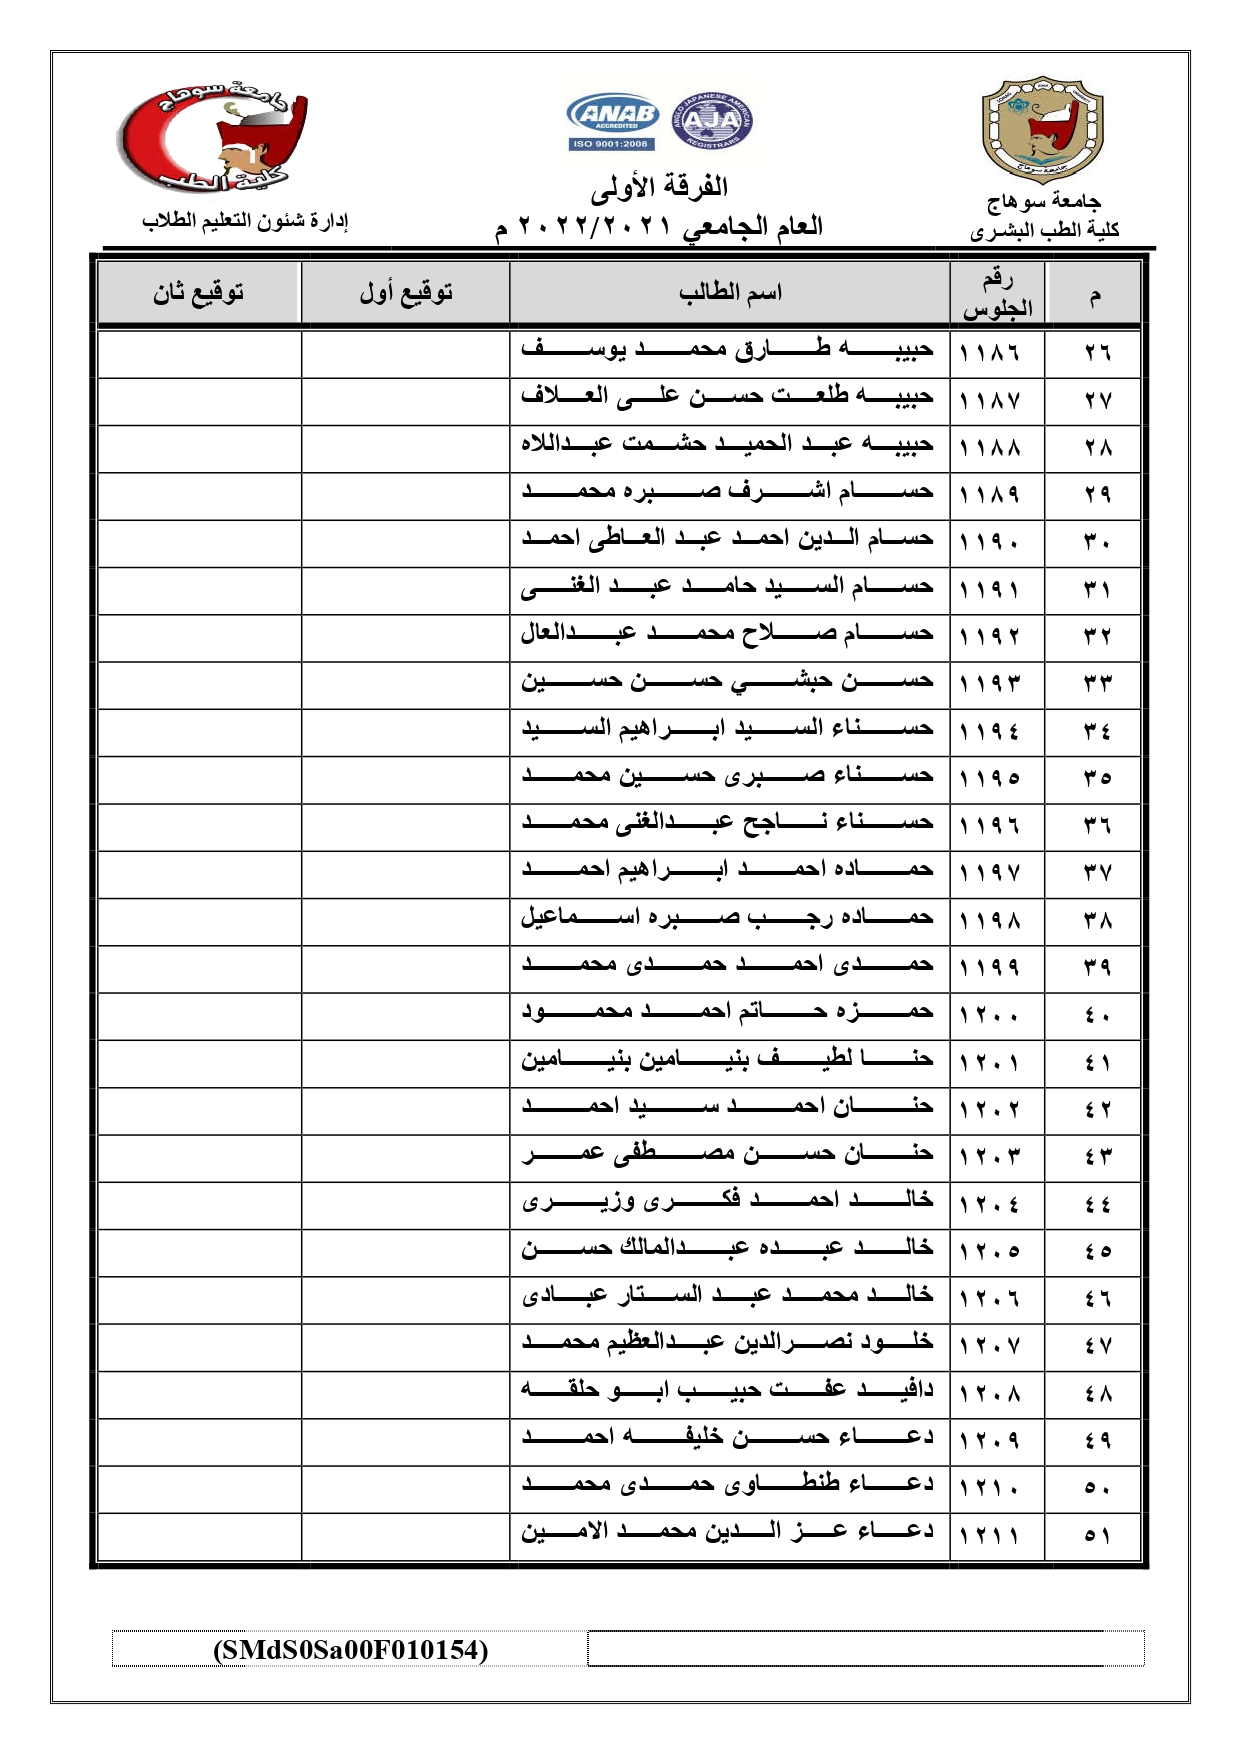 جامعة سوهاج
كلية الطب
ANAB
ACCREDITED
ISO 9001:2008
ANGLO JAPANESE AMERICAN
AJA
REGISTRARS
جامعة سوهاج
جامعة سوهاج
كلية الطب البشرى
الفرقة الأولى
العام الجامعي ٢٠٢٢/٢٠٢١ م
إدارة شئون التعليم الطلاب
م رقم الجلوس اسم الطالب توقيع أول توقيع ثان
٢٦ ١١٨٦ حبيبه طارق محمد يوسف
٢٧ ١١٨٧ حبيبه طلعت حسن على العلاف
٢٨ ١١٨٨ حبيبه عبد الحميد حشمت عبداللاه
٢٩ ١١٨٩ حسام اشرف صبره محمد
٣٠ ١١٩٠ حسام الدين احمد عبد العاطى احمد
٣١ ١١٩١ حسام السيد حامد عبد الغنى
٣٢ ١١٩٢ حسام صلاح محمد عبدالعال
٣٣ ١١٩٣ حسن حبشي حسن حسين
٣٤ ١١٩٤ حسناء السيد ابراهيم السيد
٣٥ ١١٩٥ حسناء صبرى حسين محمد
٣٦ ١١٩٦ حسناء ناجح عبدالغنى محمد
٣٧ ١١٩٧ حماده احمد ابراهيم احمد
٣٨ ١١٩٨ حماده رجب صبره اسماعيل
٣٩ ١١٩٩ حمدى احمد حمدى محمد
٤٠ ١٢٠٠ حمزه حاتم احمد محمود
٤١ ١٢٠١ حنا لطيف بنيامين بنيامين
٤٢ ١٢٠٢ حنان احمد سيد احمد
٤٣ ١٢٠٣ حنان حسن مصطفى عمر
٤٤ ١٢٠٤ خالد احمد فكرى وزيرى
٤٥ ١٢٠٥ خالد عبده عبدالمالك حسن
٤٦ ١٢٠٦ خالد محمد عبد الستار عبادى
٤٧ ١٢٠٧ خلود نصرالدين عبدالعظيم محمد
٤٨ ١٢٠٨ دافيد عفت حبيب ابو حلقه
٤٩ ١٢٠٩ دعاء حسن خليفه احمد
٥٠ ١٢١٠ دعاء طنطاوى حمدى محمد
٥١ ١٢١١ دعاء عز الدين محمد الامين
(SMdS0Sa00F010154)